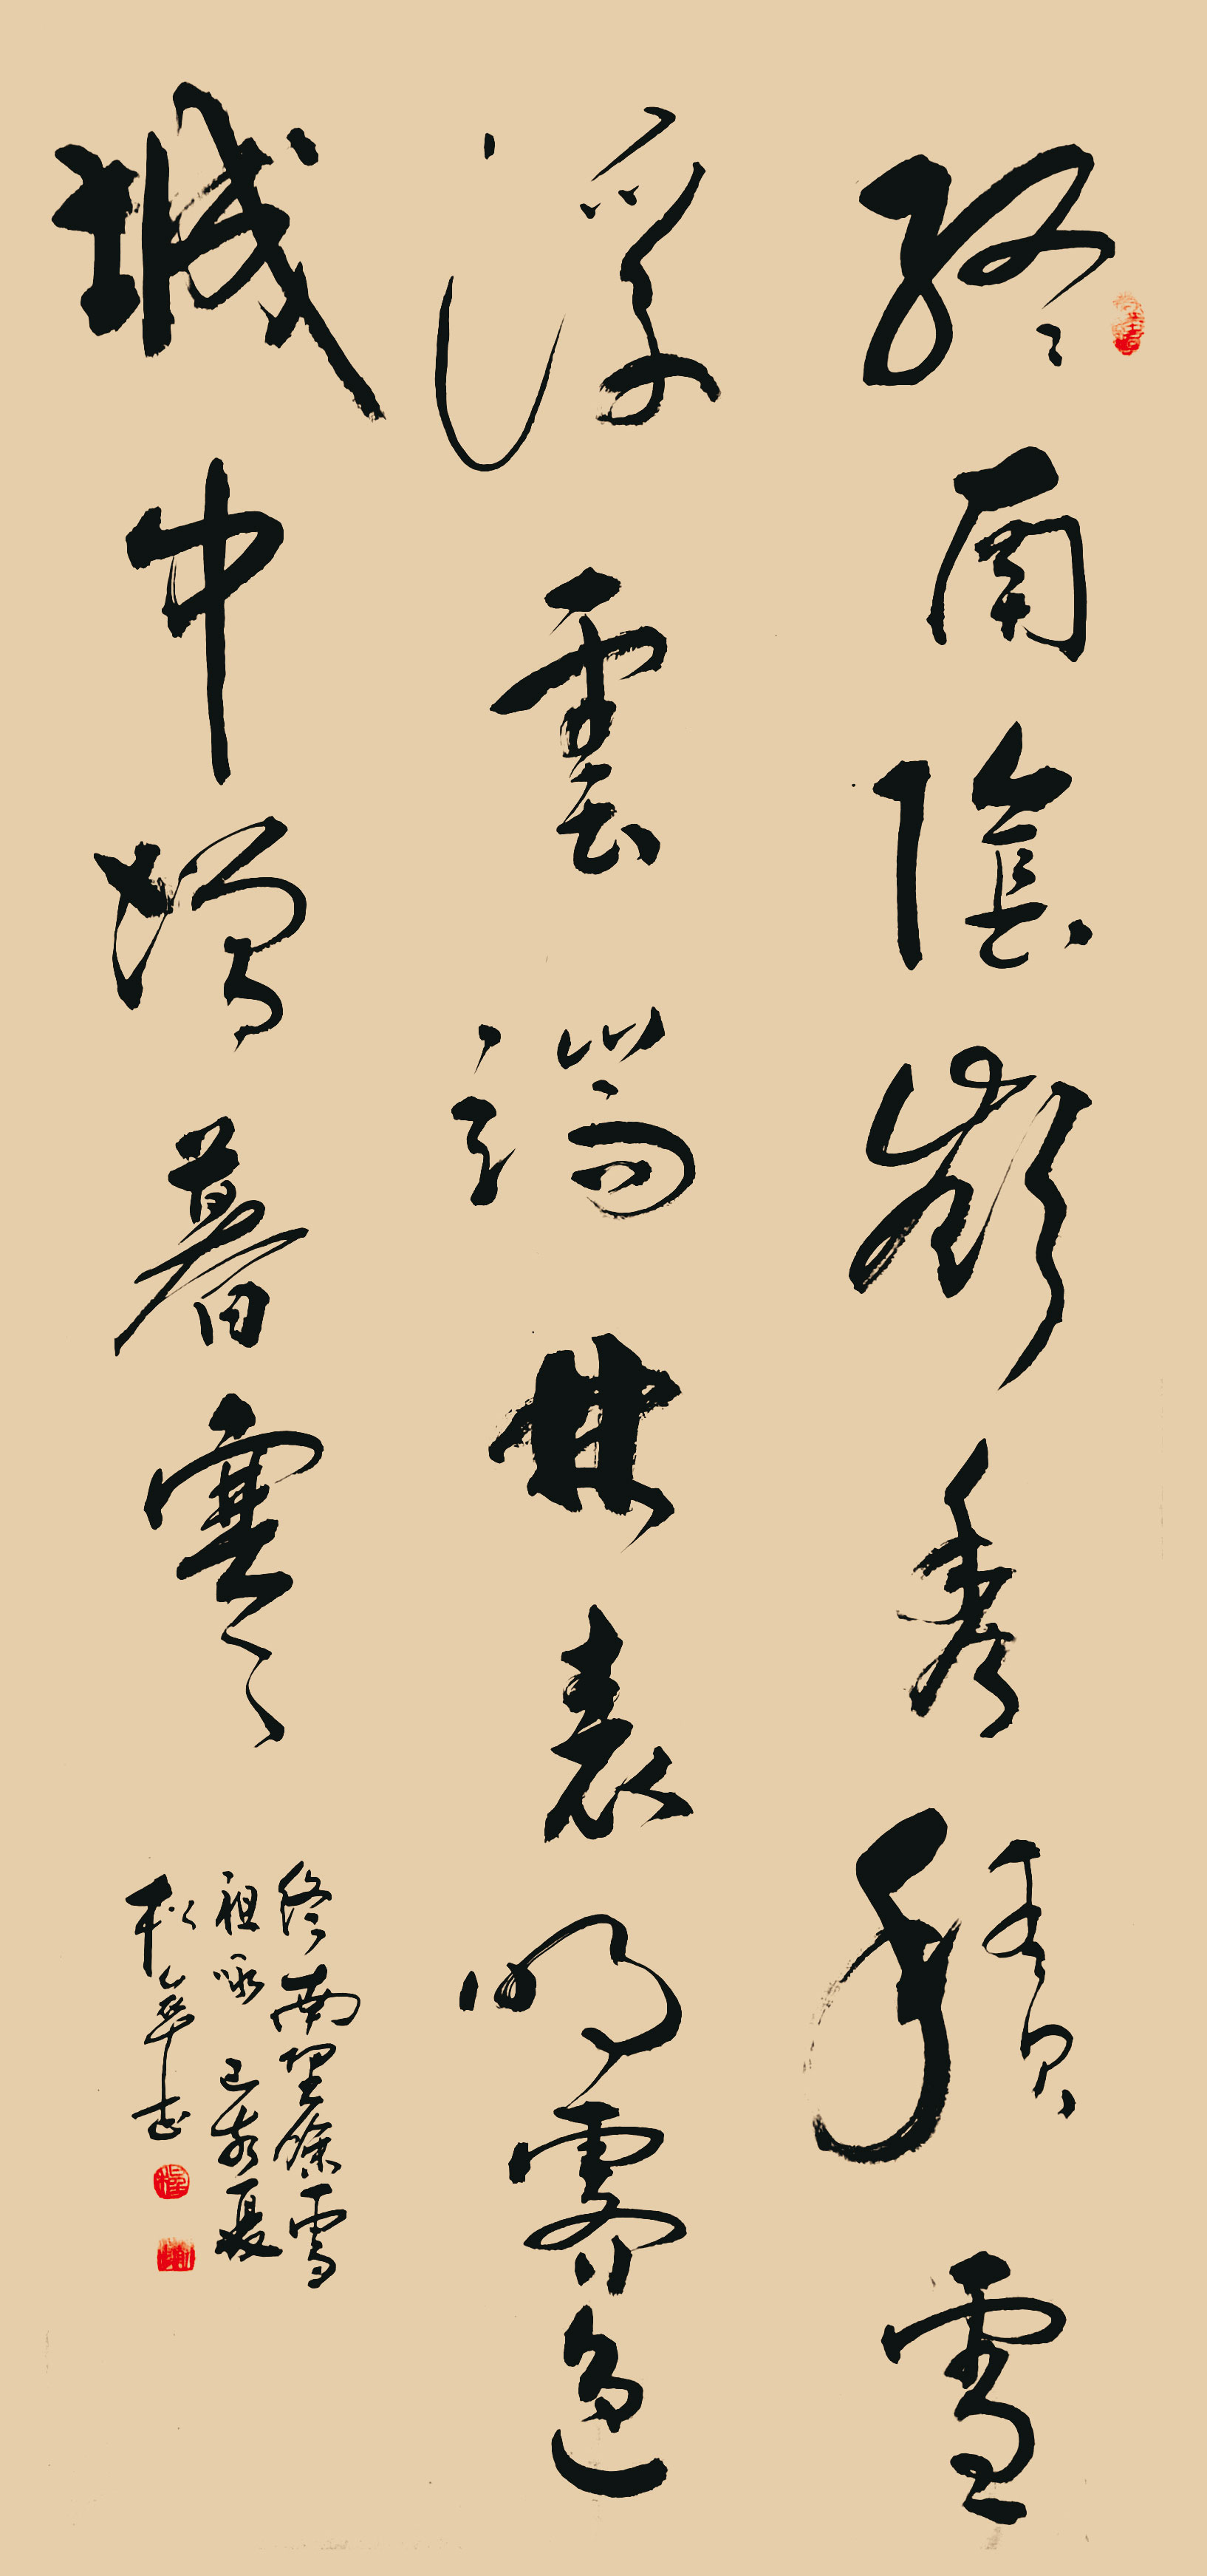 終南陰嶺秀積雪
浮雲端林表明霽色
城中增暮寒
終南望餘雪
祖詠 己亥夏
松 志